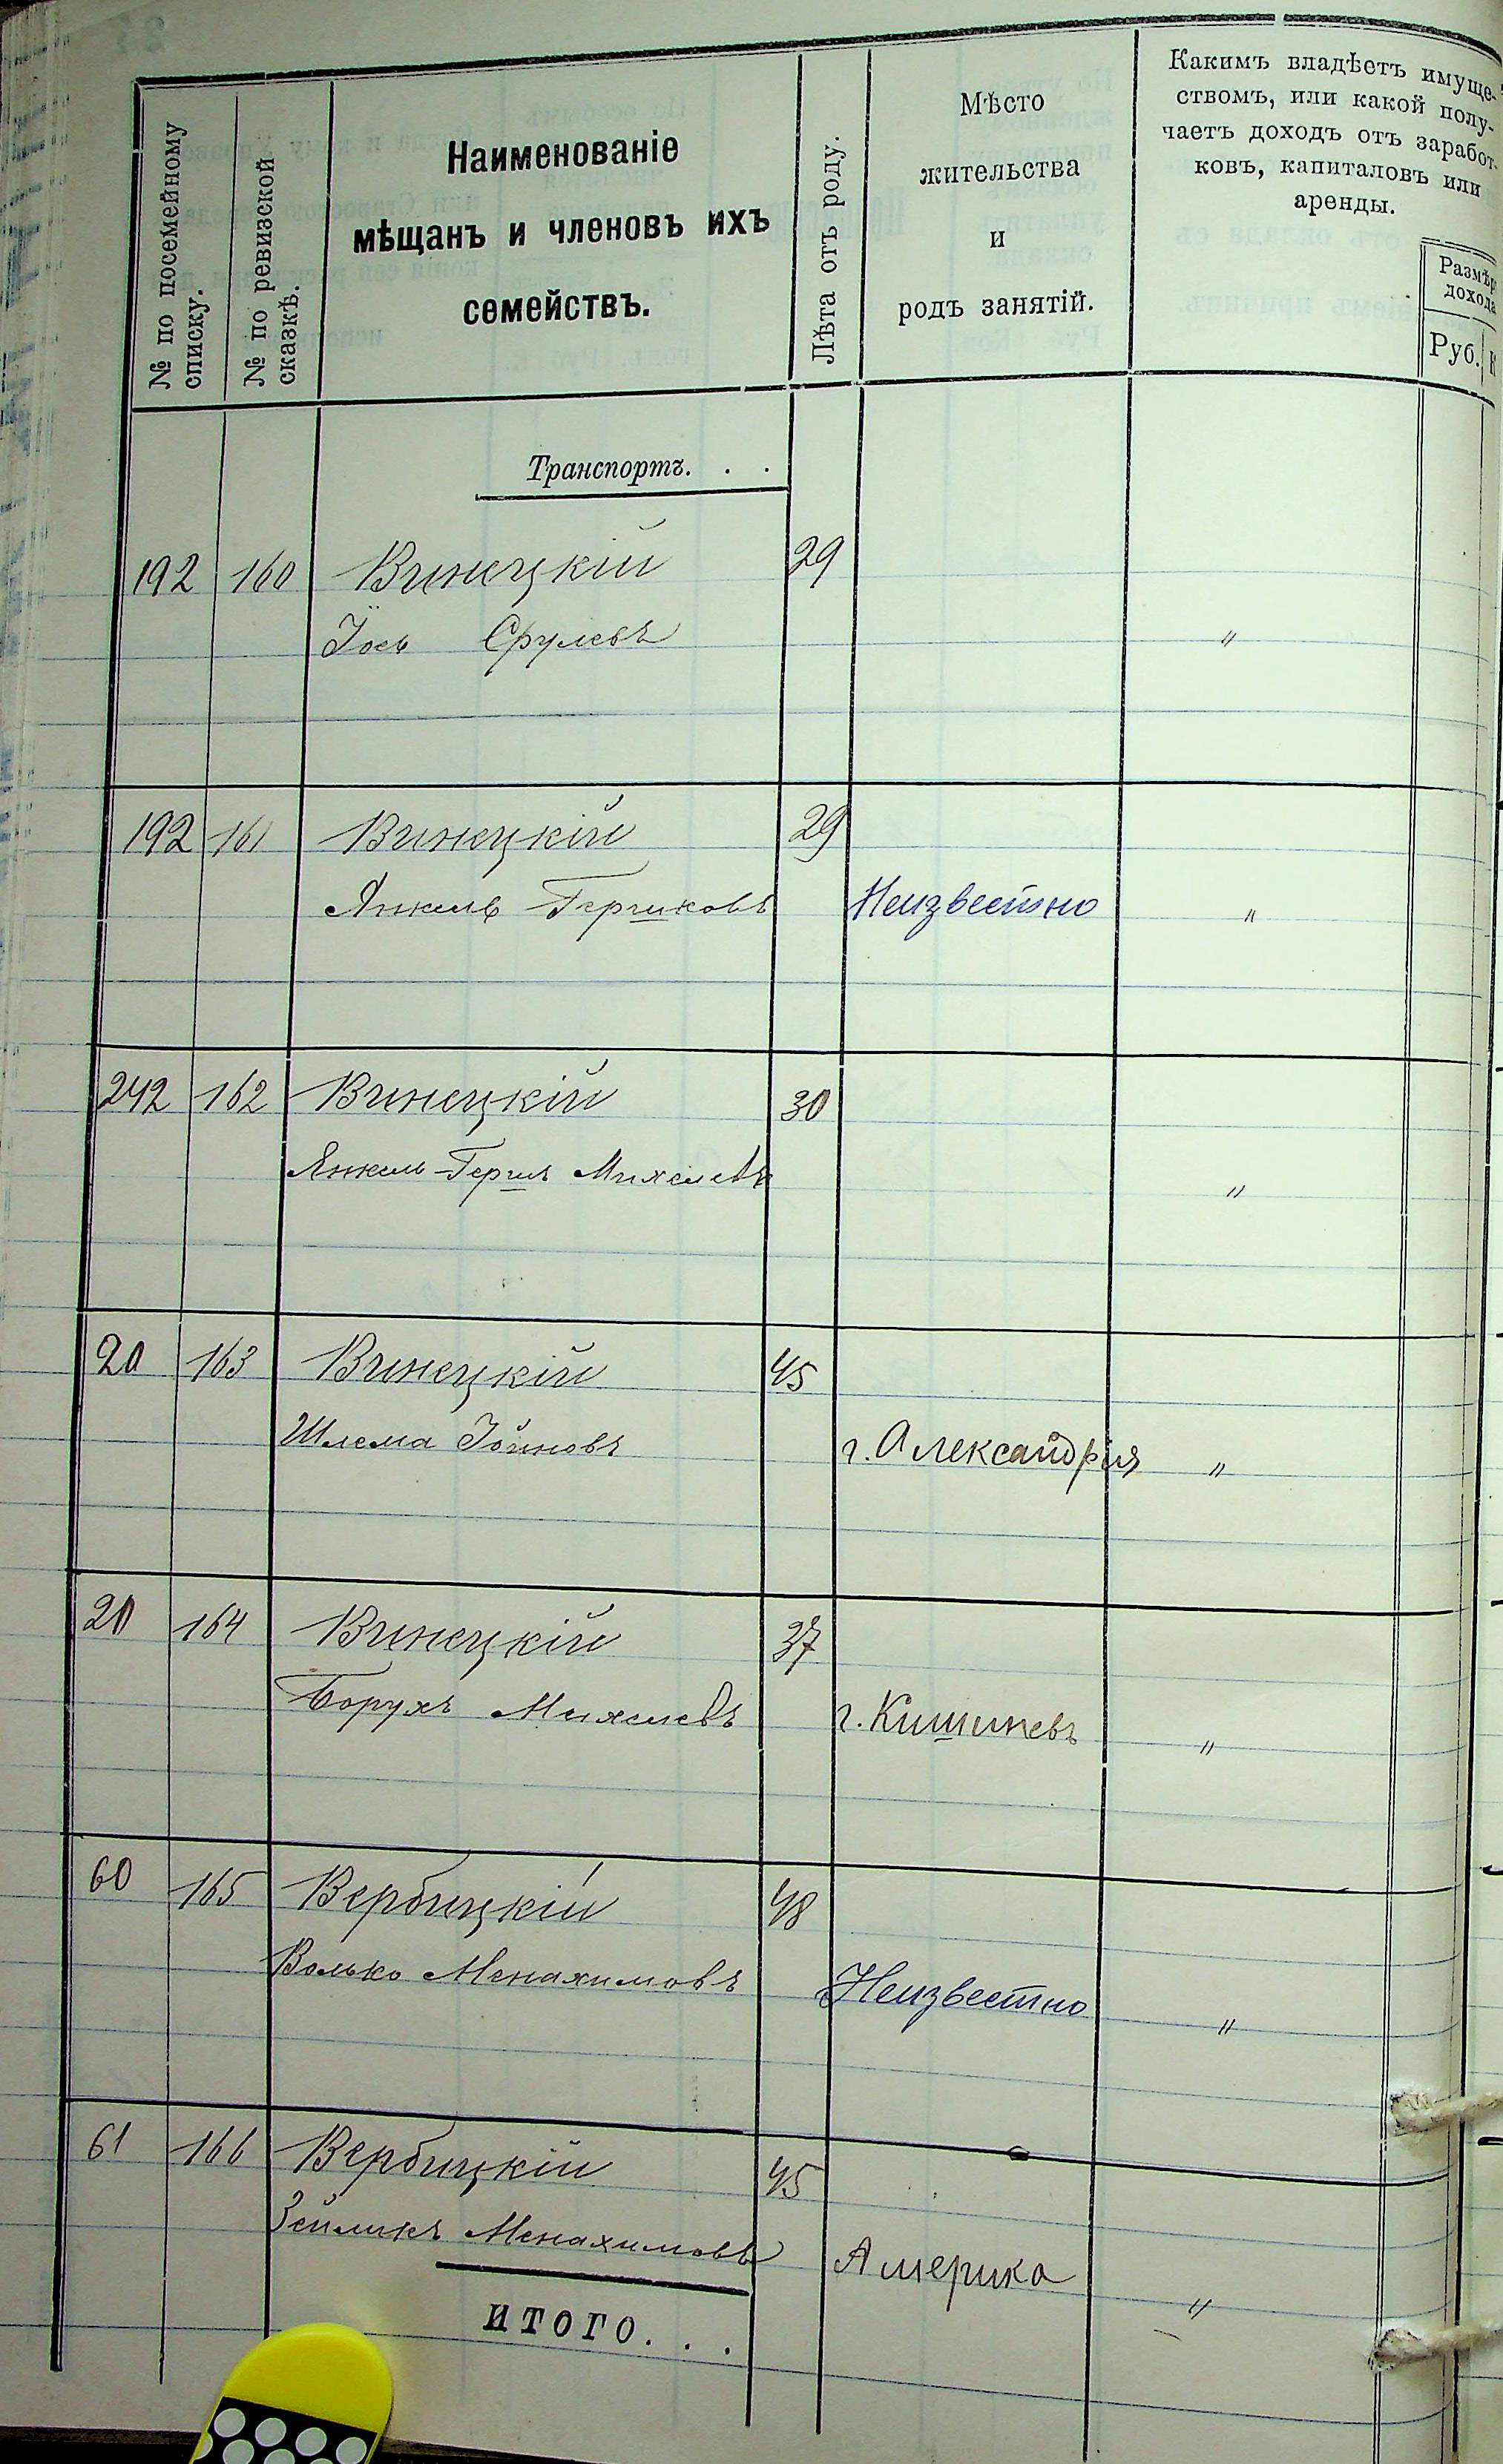 № по посемейному
списку.
№ по ревизской
сказкѣ.
Наименованіе
мѣщанъ и членовъ ихъ
семействъ.
Лѣта отъ роду.
Мѣсто
жительства
и
родъ занятій.
Какимъ владѣетъ имуще-
ствомъ, или какой полу-
чаетъ доходъ отъ заработ-
ковъ, капиталовъ или
аренды.
Размѣр
дохода
Руб.
Транспортъ. . .
192 160 Винецкій 29
Іось Срулевъ "
192 161 Винецкій 29
Янкель Гершковъ Неизвестно "
242 162 Винецкій 30
Янкель-Гершъ Михелевъ "
20 163 Винецкій 45
Шлема Іойновъ г. Александрія "
20 164 Винецкій 37
Борухъ Михелевъ г. Кишиневъ "
60 165 Вербицкій 48
Волько Менахимовъ Неизвестно "
61 166 Вербицкій 45
Зейликъ Менахимовъ Америка "
ИТОГО. . .